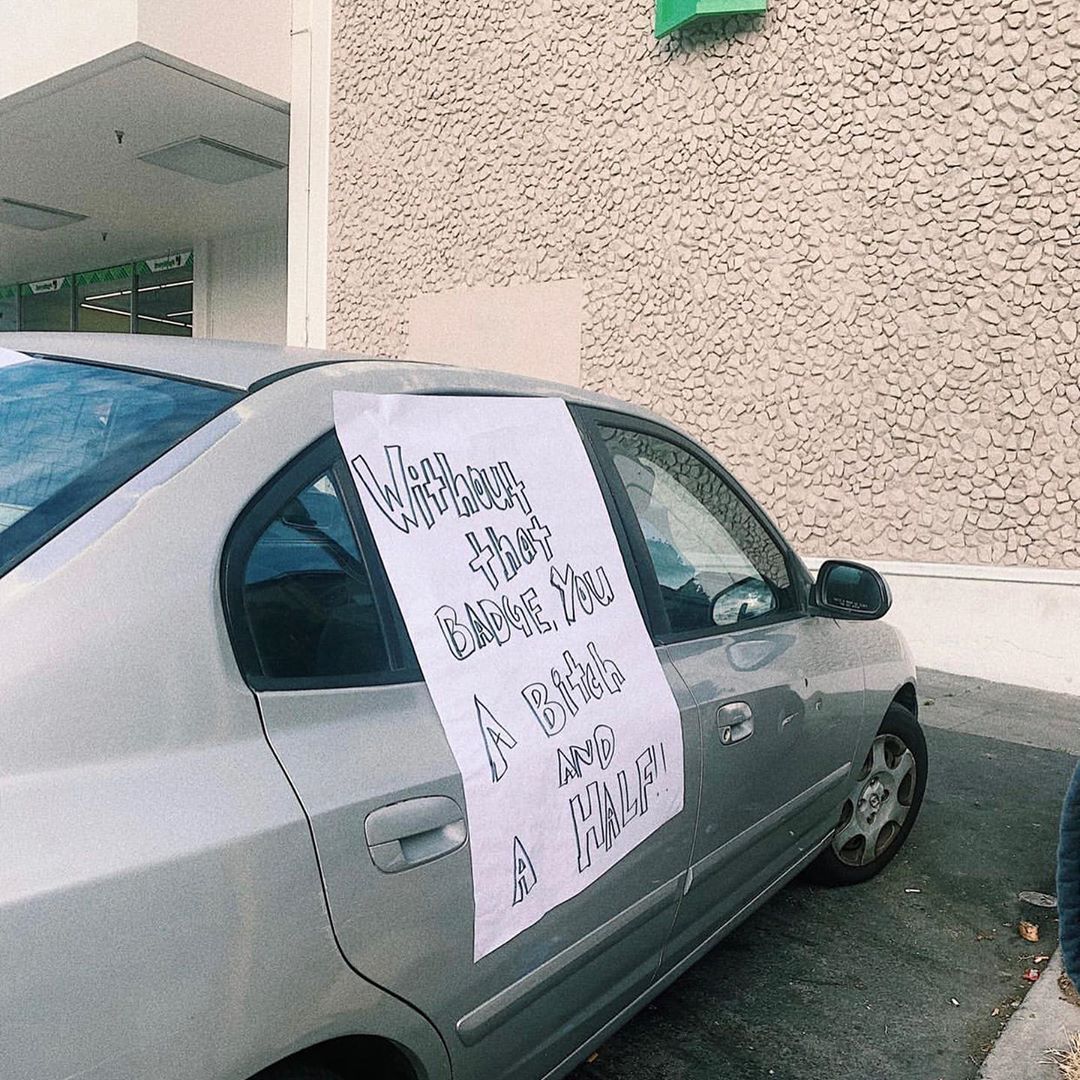 Without
that
BADGE, You
A Bitch
AND
A HALF!!